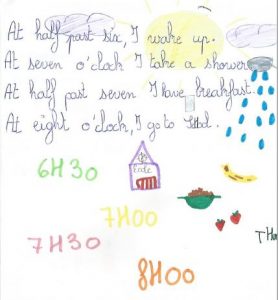 At half past six, I wake up.
At seven o'clock I take a shower
At half past seven I have breakfast.
At eight o'clock, I go to
6H30
Ecole
7H00
7H30
8H00